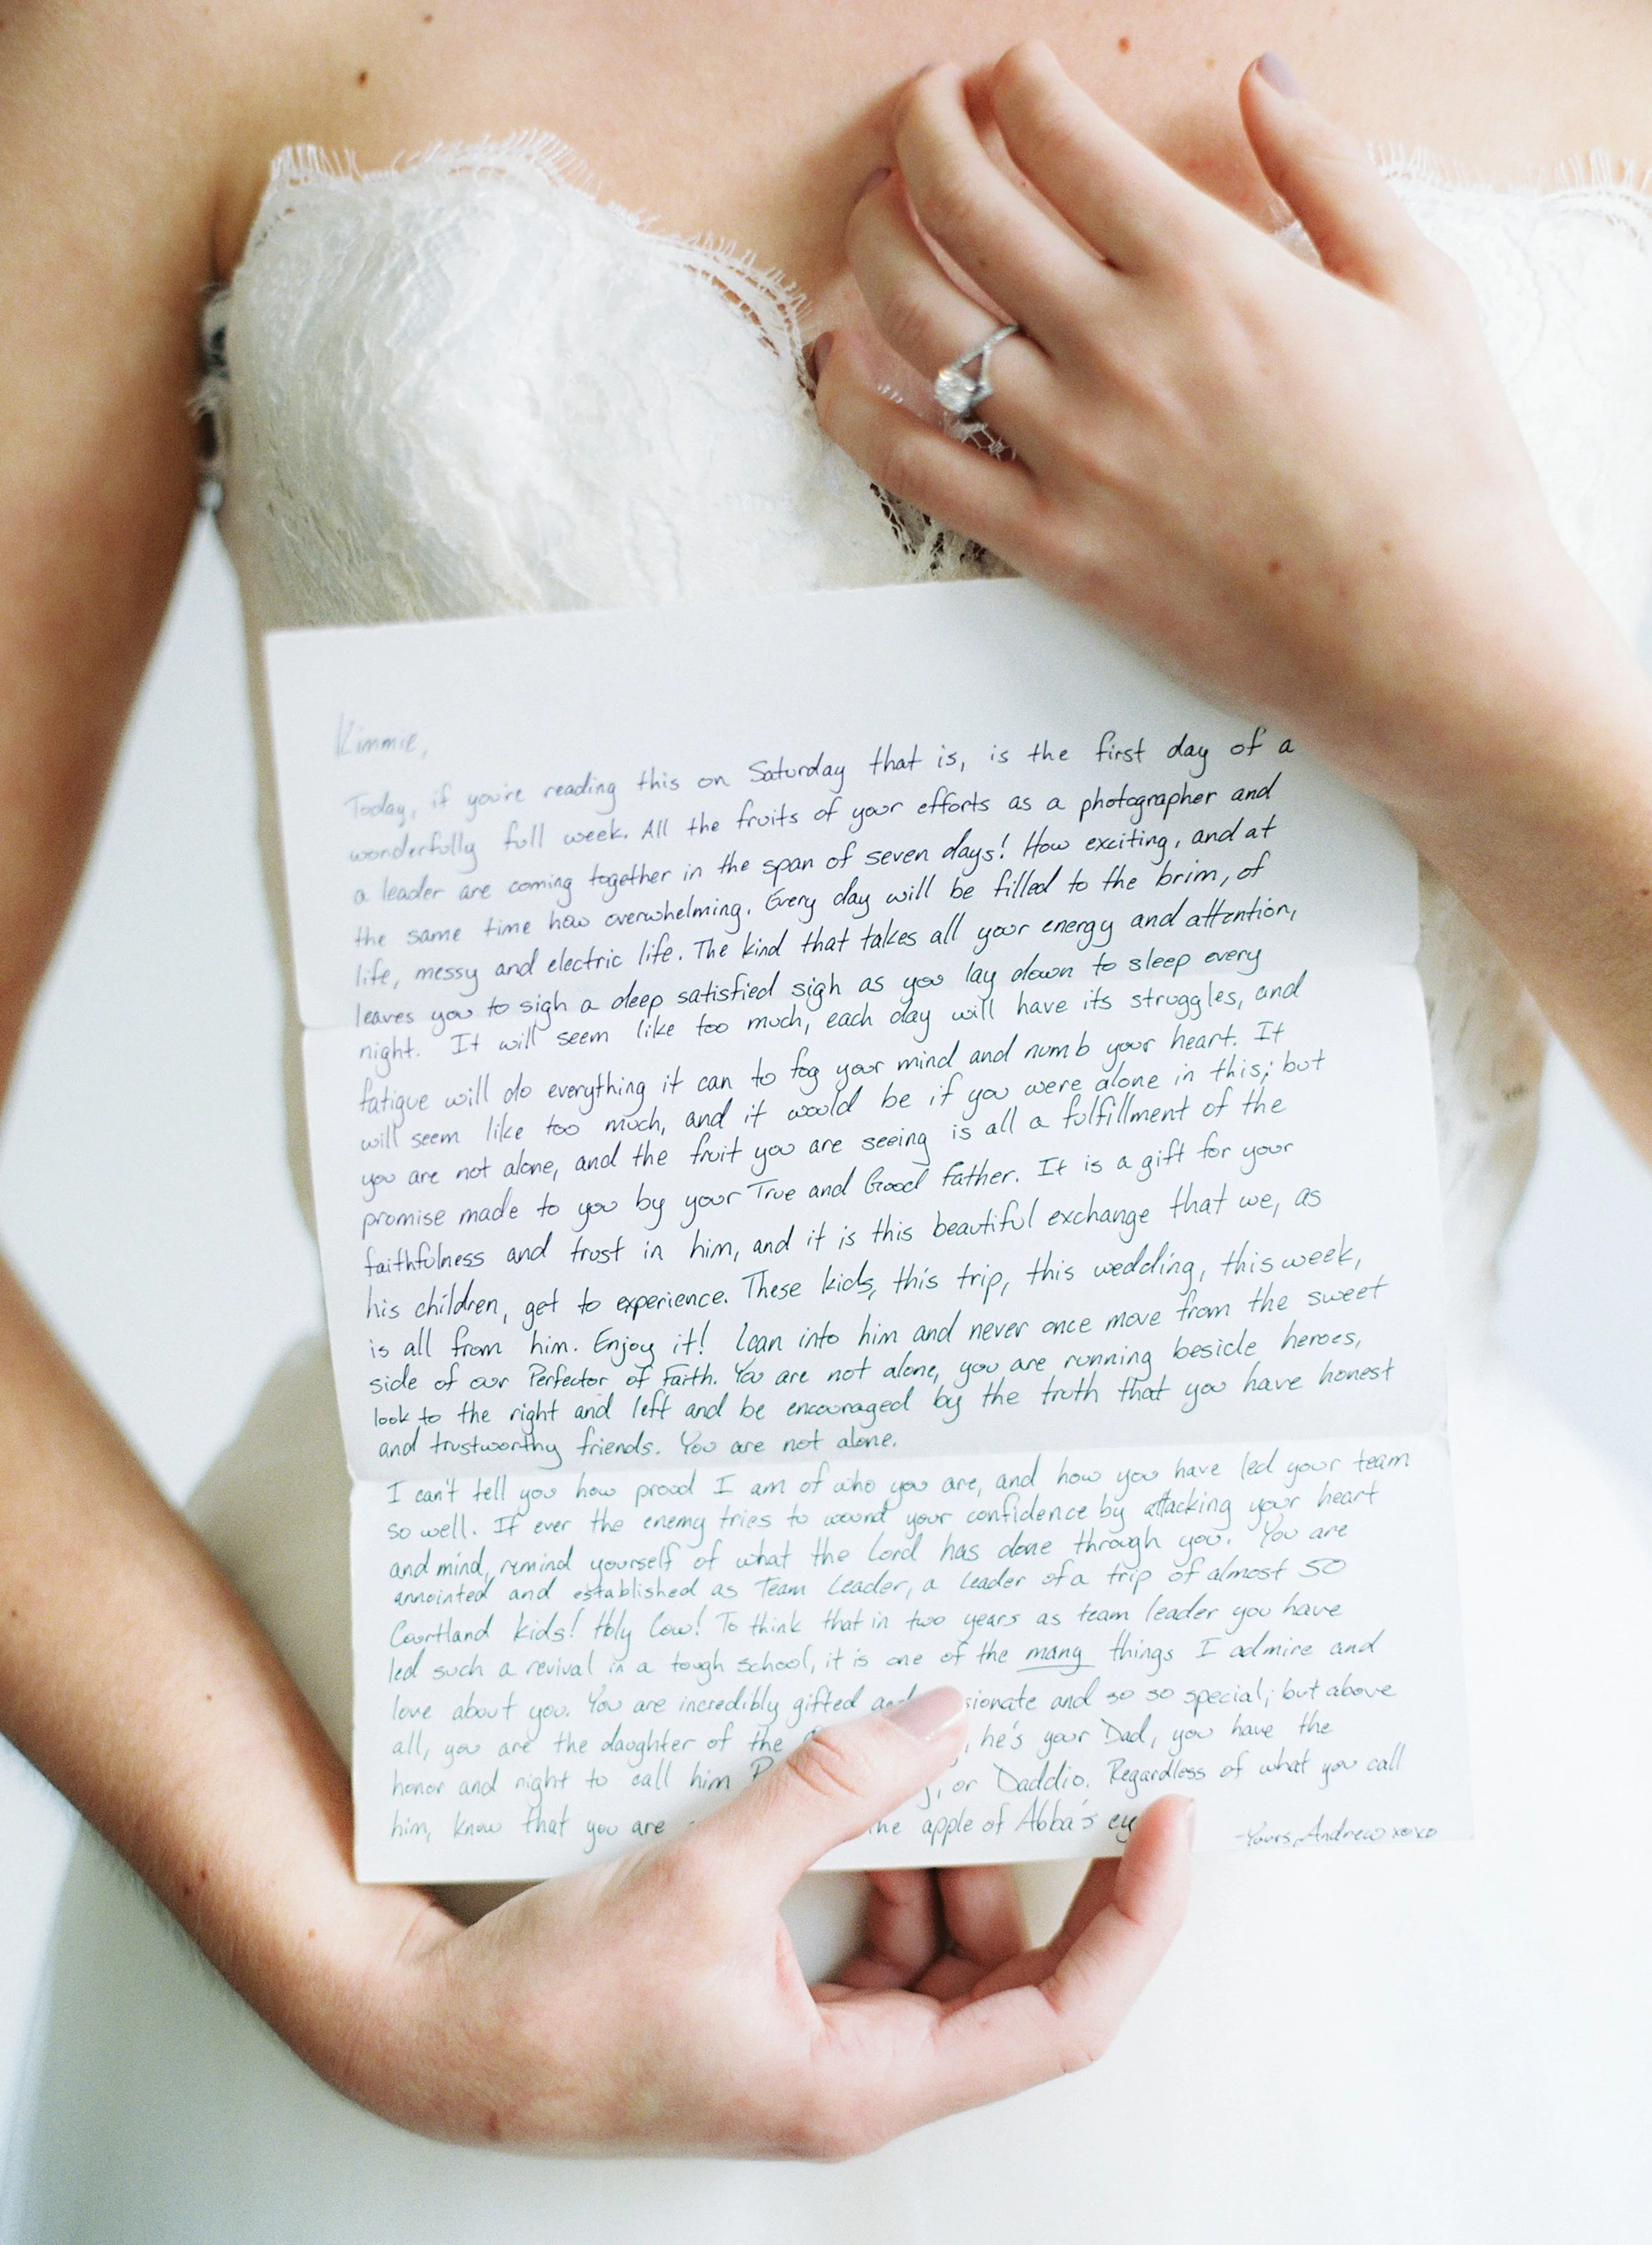 Kimmie,
Today, if you're reading this on Saturday that is, is the first day of a
wonderfully full week. All the fruits of your efforts as a photographer and
a leader are coming together in the span of seven days! How exciting, and at
the same time how overwhelming. Every day will be filled to the brim, of
life, messy and electric life. The kind that takes all your energy and attention,
leaves you to sigh a deep satisfied sigh as you lay down to sleep every
night. It will seem like too much, each day will have its struggles, and
fatigue will do everything it can to fog your mind and numb your heart. It
will seem like too much, and it would be if you were alone in this; but
you are not alone, and the fruit you are seeing is all a fulfillment of the
promise made to you by your True and Good Father. It is a gift for your
faithfulness and trust in him, and it is this beautiful exchange that we, as
his children, get to experience. These kids, this trip, this wedding, this week,
is all from him. Enjoy it! Lean into him and never once move from the sweet
side of our Perfector of Faith. You are not alone, you are running beside heroes,
look to the right and left and be encouraged by the truth that you have honest
and trustworthy friends. You are not alone.
I can't tell you how proud I am of who you are, and how you have led your team
so well. If ever the enemy tries to wound your confidence by attacking your heart
and mind, remind yourself of what the Lord has done through you. You are
annointed and established as Team Leader, a leader of a trip of almost 50
Courtland kids! Holy Cow! To think that in two years as team leader you have
led such a revival in a tough school, it is one of the many things I admire and
love about you. You are incredibly gifted and sionate and so so special; but above
all, you are the daughter of the , he's your Dad, you have the
honor and right to call him , or Daddio. Regardless of what you call
him, know that you are the apple of Abba's ey
-Yours, Andrew xoxo